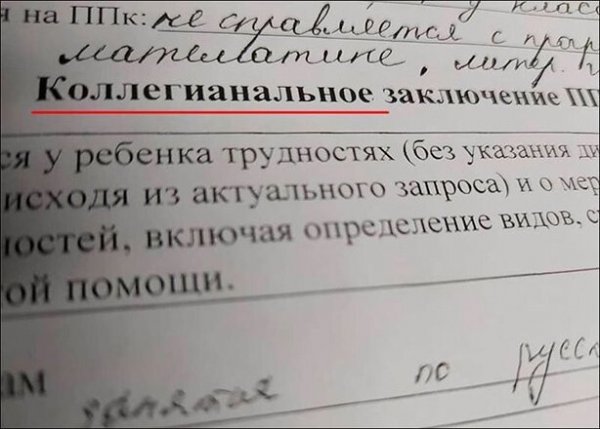 я на ППк: не справляется с прог
математике, литер.
Коллегианальное заключение ПП
ся у ребенка трудностях (без указания ди
исходя из актуального запроса) и о мер
ностей, включая определение видов, с
ой помощи.
ам занятия по русск